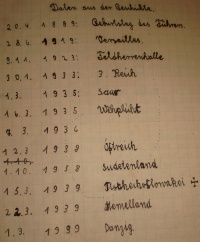 Daten aus der Geschichte.
20.4. 1889: Geburtstag des Führers.
28.6. 1919: Versailles.
9.11. 1923: Feldherrnhalle
30.1. 1933: 3. Reich
1.3. 1935: Saar
16.3. 1935 Wehrpflicht
7.3. 1936
12.3 1938 Östreich
1.10.
1.10. 1938 Sudetenland
15.3. 1939 Tschechoslowakei
22.3. 1939 Memelland
1.9. 1939 Danzig